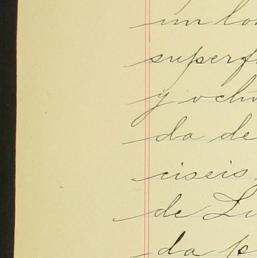 un lo
superf
y ochu
da de
ciseis
de Lu
da p